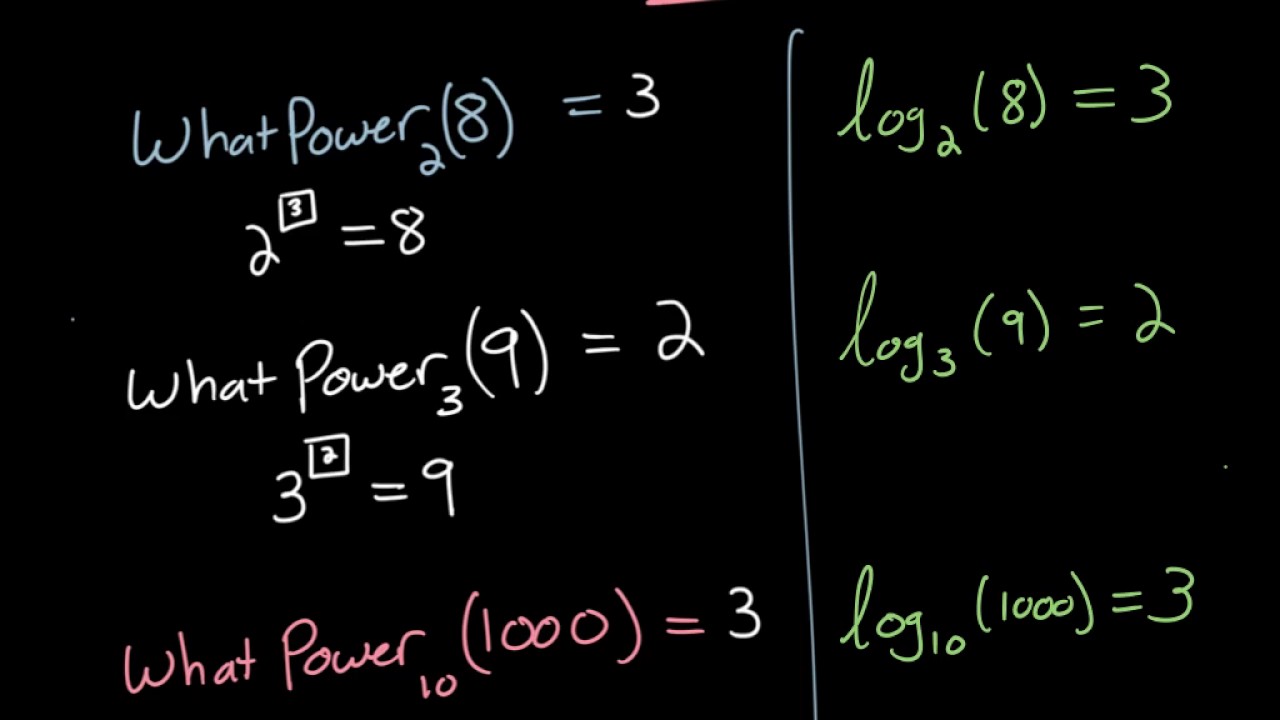 WhatPower₂(8) = 3
2³ = 8
What Power₃(9) = 2
3² = 9
What Power₁₀(1000) = 3
log₂(8) = 3
log₃(9) = 2
log₁₀(1000) = 3